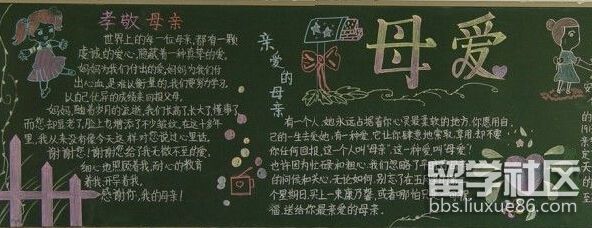 孝敬母亲
世界上的每一位母亲,都有一颗
虔诚的爱心,蕴藏着一种真挚的爱。
妈妈为我们付出的爱,妈妈为我们付
出心血,是难以衡量的,我们要努力学习,
以自己优异的成绩来回报父母。
妈妈,随着岁月的流逝,我们长高了,长大了,懂事了,
而您却操老了,脸上也增添了不少皱纹,在这十多年
里,我从来没有像今天这样对您说过心里话。
谢谢您!谢谢您给了我无微不至的爱,
细心地照顾着我,耐心的教育
着我,开导着我。
感谢你,我的母亲!
亲爱的母亲
母爱
有一个人,她永远占据着你心灵最柔软的地方,你愿用自
己的一生去爱她;有一种爱,它让你肆意地索取、享用,却不要
你任何回报,这一个人叫"母亲",这一种爱叫"母爱"!
也许因为忙碌和粗心,我们忽略了
的问候和关心,无论如何,别忘了在五月
个星期日,买上一束康乃馨,或者哪怕只
谣,送给你最亲爱的母亲。
留学社区
bbs.liuxue86.com